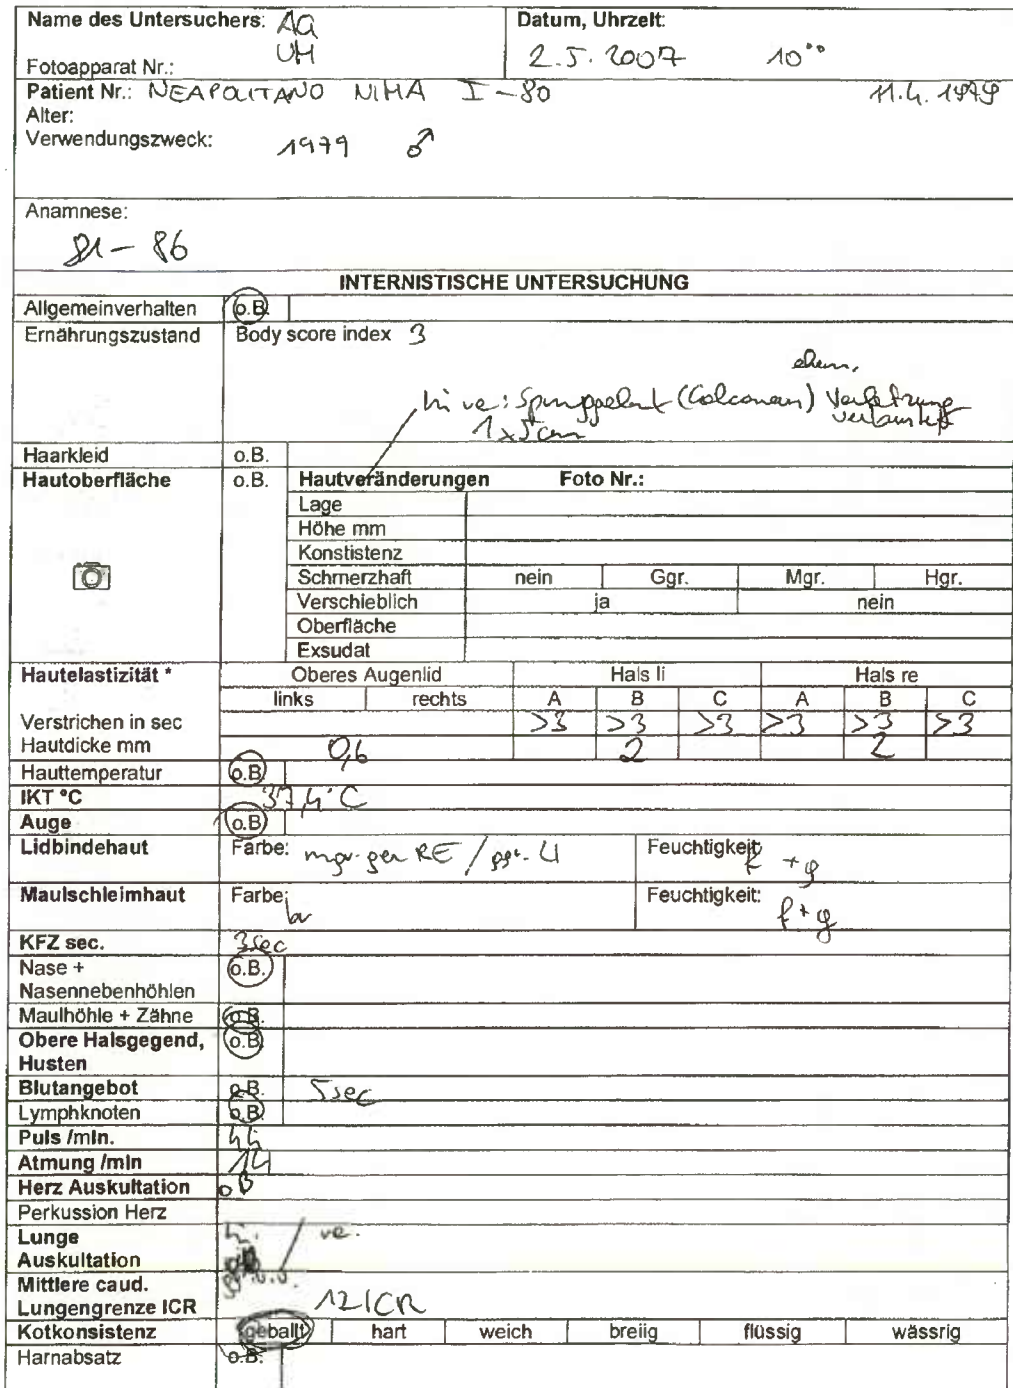 Name des Untersuchers: AG
UM
Fotoapparat Nr.:
Datum, Uhrzeit:
2.5.2007 10°°
Patient Nr.: NEAPOLITANO NIMA I-80 11.4.1979
Alter:
Verwendungszweck: 1979 ♂
Anamnese:
81-86
INTERNISTISCHE UNTERSUCHUNG
Allgemeinverhalten o.B.
Ernährungszustand Body score index 3
ehem.
hi re: (Calcaneus) Verletzung
1x5cm
Haarkleid o.B.
Hautoberfläche o.B. Hautveränderungen Foto Nr.:
Lage
Höhe mm
Konstistenz
Schmerzhaft nein Ggr. Mgr. Hgr.
Verschieblich ja nein
Oberfläche
Exsudat
Hautelastizität * Oberes Augenlid Hals li Hals re
links rechts A B C A B C
Verstrichen in sec >3 >3 >3 >3 >3 >3
Hautdicke mm 0,6 2 2
Hauttemperatur o.B.
IKT °C 37,4°C
Auge o.B.
Lidbindehaut Farbe: mgr. ger RE / ggr. LI Feuchtigkeit: f + g
Maulschleimhaut Farbe: Feuchtigkeit: f + g
KFZ sec. 3sec
Nase + o.B.
Nasennebenhöhlen
Maulhöhle + Zähne o.B.
Obere Halsgegend, o.B.
Husten
Blutangebot o.B. 5sec
Lymphknoten o.B.
Puls /min. 44
Atmung /min 14
Herz Auskultation oB
Perkussion Herz
Lunge
Auskultation
Mittlere caud.
Lungengrenze ICR 12 ICR
Kotkonsistenz geballt hart weich breiig flüssig wässrig
Harnabsatz o.B.